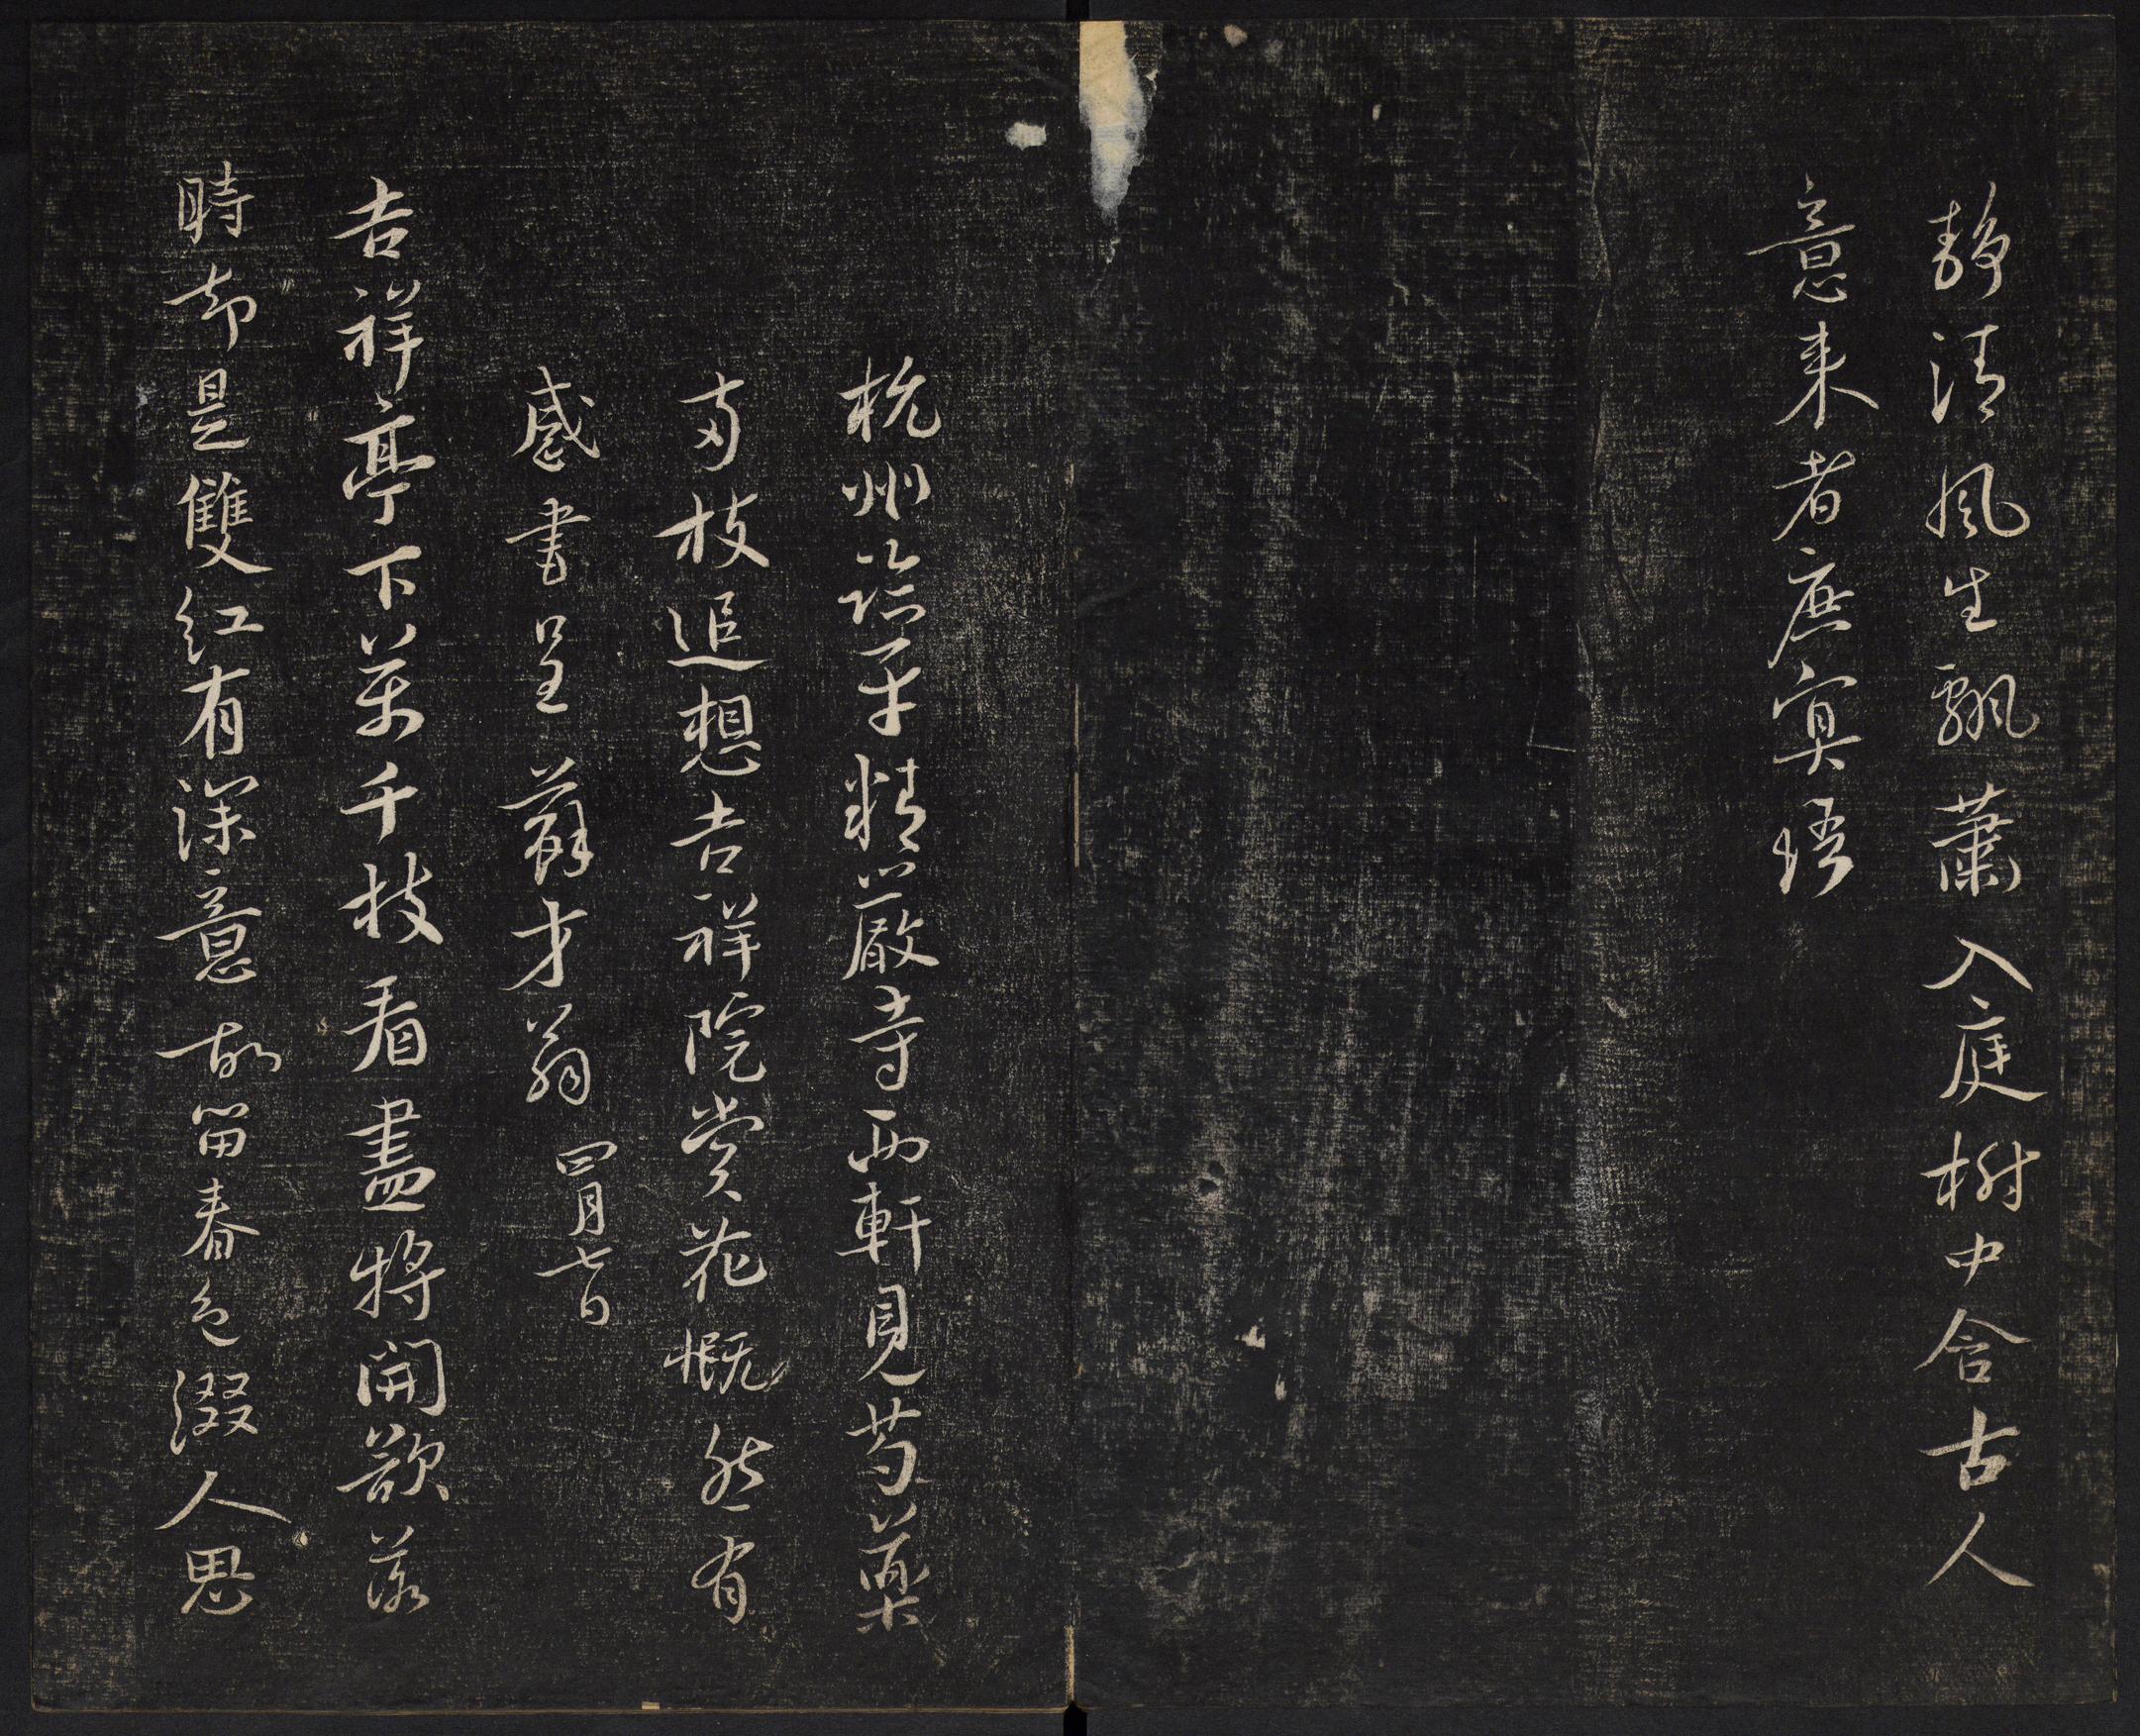 靜清風生飄蕭入庭樹中含古人
意来者庶冥悟
杭州臨平精嚴寺西軒見芍藥
兩枝追想吉祥院賞花慨然有
感書呈蘇才翁 四月七日
吉祥亭下萬千枝看盡將開欲落
時却是雙紅有深意故留春色綴人思